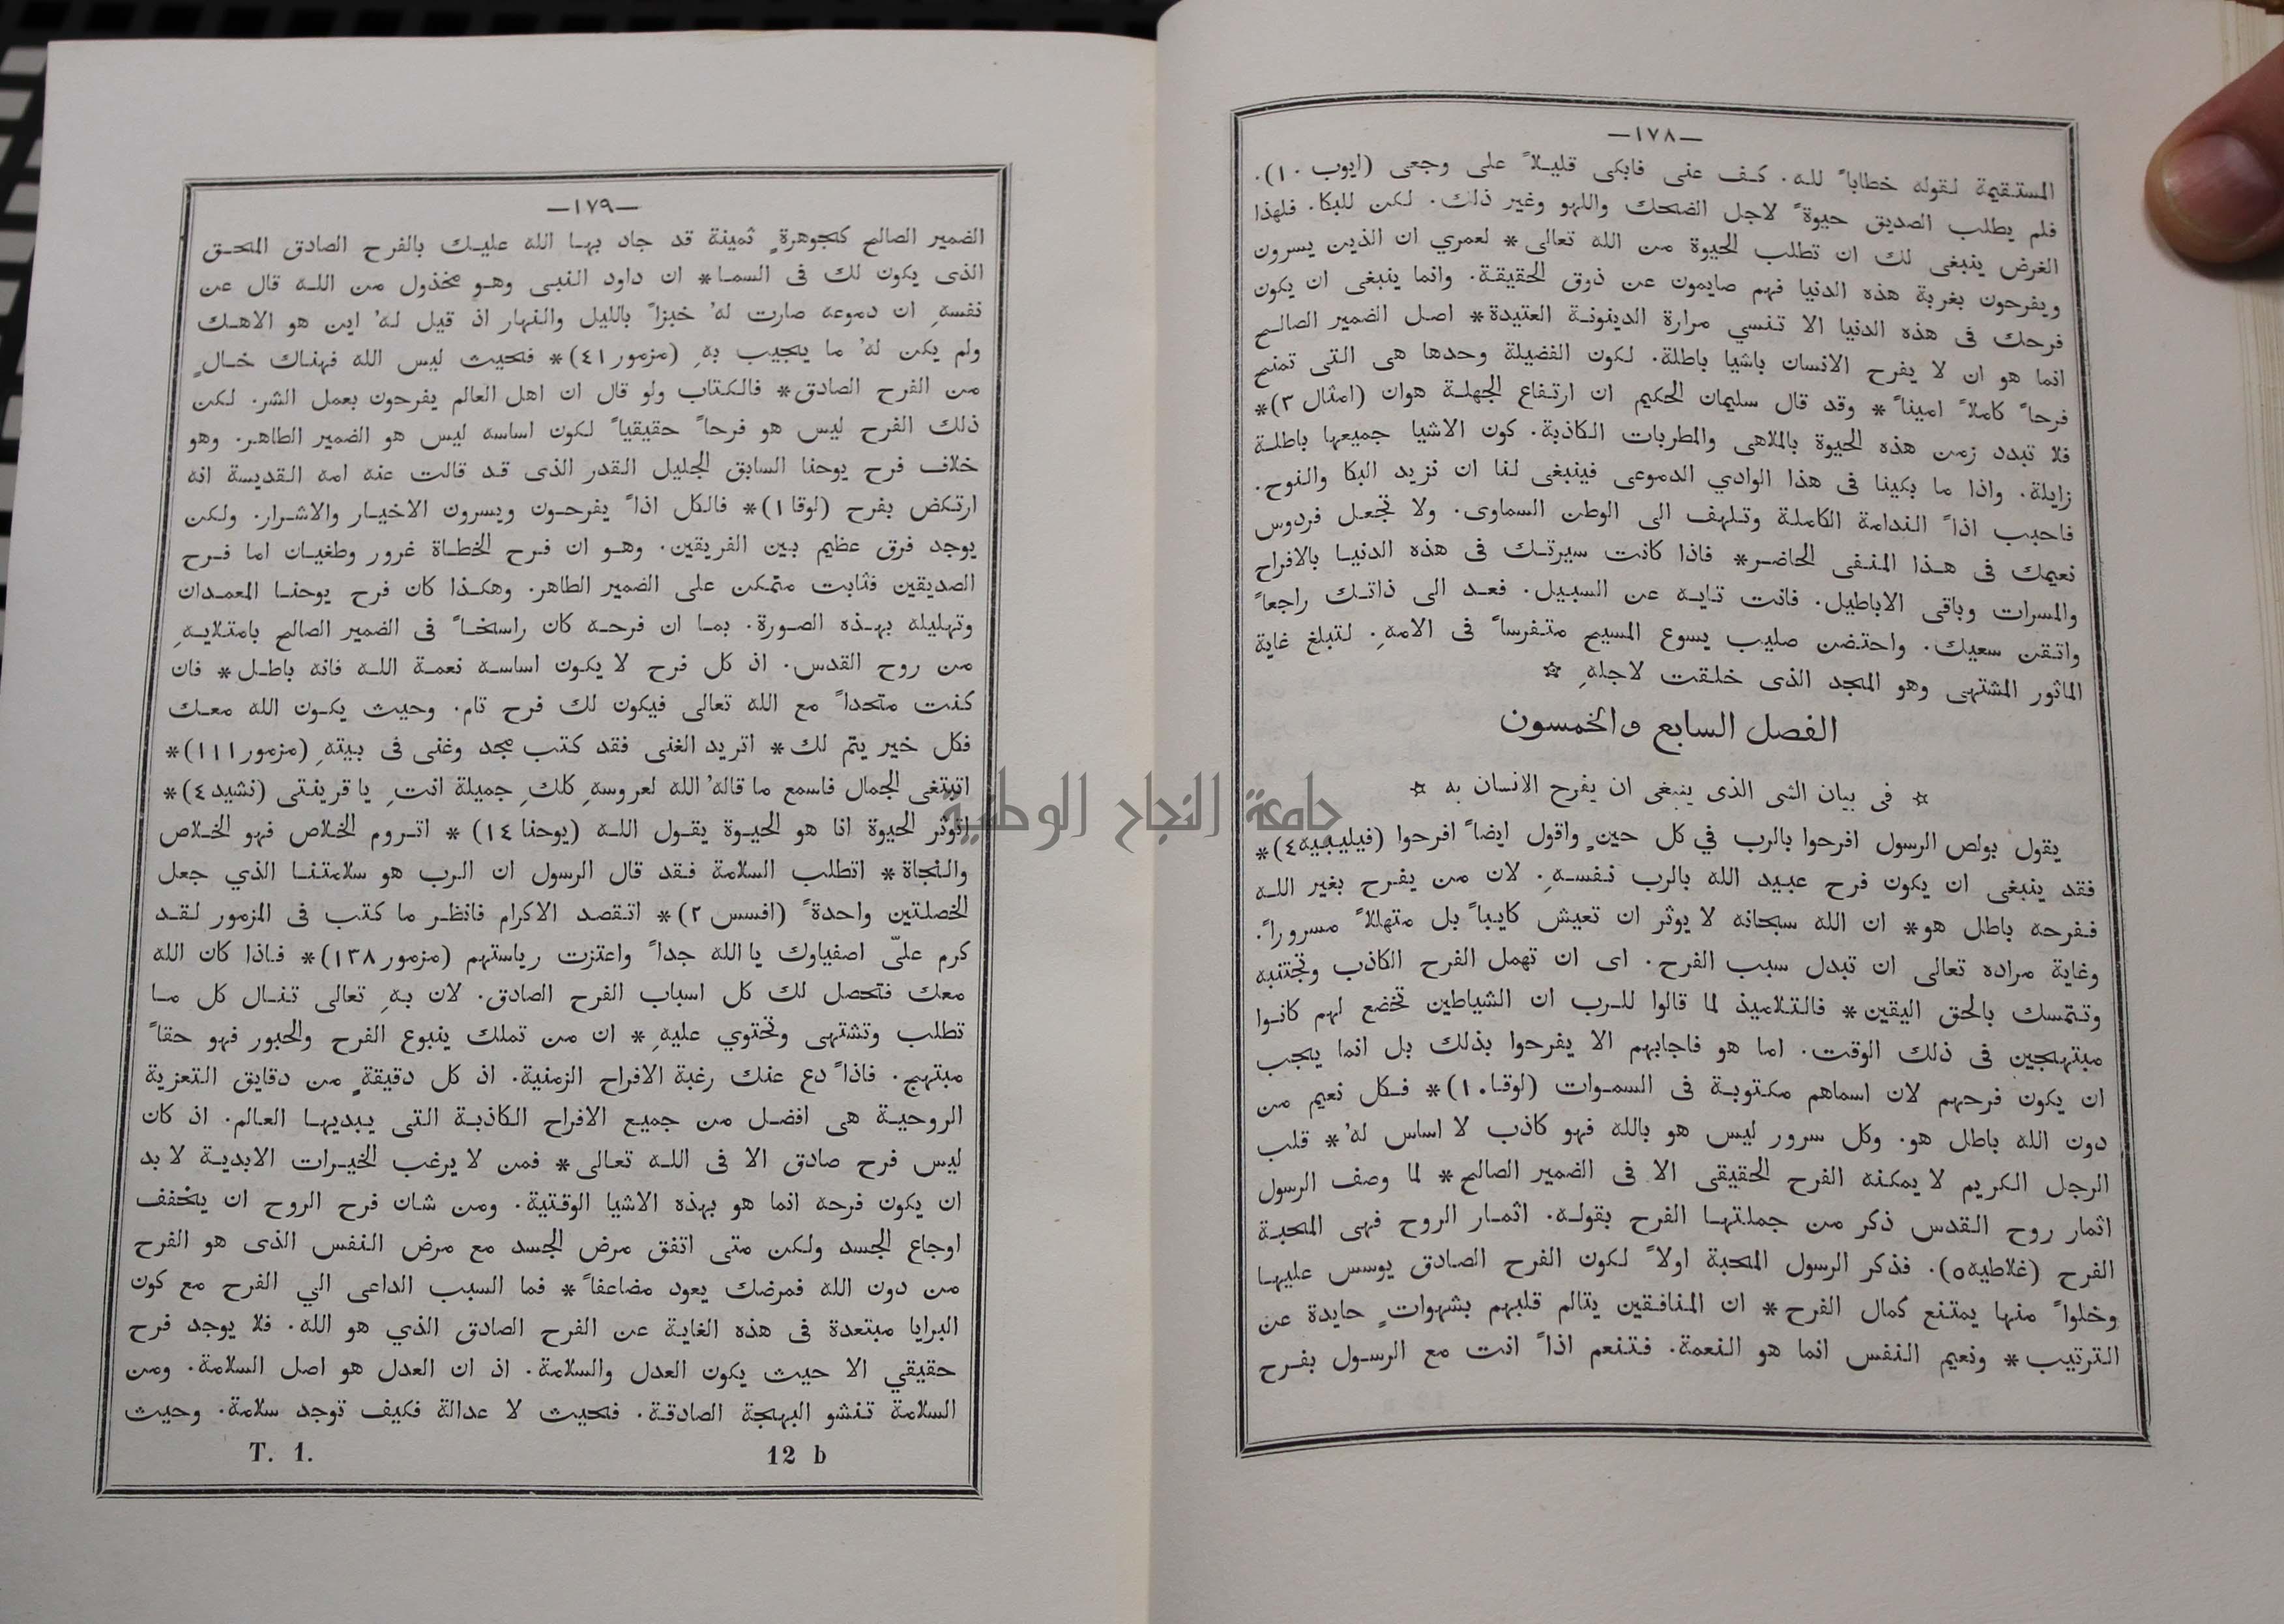 —١٧٨—
المستقيمة لقوله خطاباً لله. كف عنى فابكى قليلاً على وجعى (ايوب ١٠).
فلم يطلب الصديق حيوةً لاجل الضحك واللهو وغير ذلك. لكن للبكا. فلهذا
الغرض ينبغى لك ان تطلب الحيوة من الله تعالى* لعمري ان الذين يسرون
ويفرحون بغربة هذه الدنيا فهم صايمون عن ذوق الحقيقة. وانما ينبغى ان يكون
فرحك فى هذه الدنيا الا تنسي مرارة الدينونة العتيدة* اصل الضمير الصالح
انما هو ان لا يفرح الانسان باشيا باطلة. لكون الفضيلة وحدها هى التى تمنح
فرحاً كاملاً اميناً* وقد قال سليمان الحكيم ان ارتفاع الجهلة هوان (امثال ٣)*
فلا تبدد زمن هذه الحيوة بالملاهى والمطربات الكاذبة. كون الاشيا جميعها باطلة
زايلة. واذا ما بكينا فى هذا الوادي الدموعى فينبغى لنا ان نزيد البكا والنوح.
فاحبب اذاً الندامة الكاملة وتلهف الى الوطن السماوى. ولا تجعل فردوس
نعيمك فى هذا المنفى الحاضر* فاذا كانت سيرتك فى هذه الدنيا بالافراح
والمسرات وباقى الاباطيل. فانت تايه عن السبيل. فعد الى ذاتك راجعاً
واتقن سعيك. واحتضن صليب يسوع المسيح متفرساً فى الامهِ. لتبلغ غاية
الماثور المشتهى وهو المجد الذى خلقت لاجلهِ ☆
الفصل السابع والخمسون
☆ فى بيان الشى الذى ينبغى ان يفرح الانسان به ☆
يقول بولص الرسول افرحوا بالرب في كل حينٍ واقول ايضاً افرحوا (فيليبيه٤)*
فقد ينبغى ان يكون فرح عبيد الله بالرب نفسهِ. لان من يفرح بغير الله
ففرحه باطل هو* ان الله سبحانه لا يوثر ان تعيش كايباً بل متهللاً مسروراً.
وغاية مراده تعالى ان تبدل سبب الفرح. اى ان تهمل الفرح الكاذب وتجتنبه
وتتمسك بالحق اليقين* فالتلاميذ لما قالوا للرب ان الشياطين تخضع لهم كانوا
مبتهجين فى ذلك الوقت. اما هو فاجابهم الا يفرحوا بذلك بل انما يجب
ان يكون فرحهم لان اسماهم مكتوبة فى السموات (لوقا١٠)* فكل نعيم من
دون الله باطل هو. وكل سرور ليس هو بالله فهو كاذب لا اساس لهُ* قلب
الرجل الكريم لا يمكنه الفرح الحقيقى الا فى الضمير الصالح* لما وصف الرسول
اثمار روح القدس ذكر من جملتها الفرح بقوله. اثمار الروح فهى المحبة
الفرح (غلاطيه٥). فذكر الرسول المحبة اولاً لكون الفرح الصادق يوسس عليها
وخلواً منها يمتنع كمال الفرح* ان المنافقين يتالم قلبهم بشهواتٍ حايدة عن
الترتيب* ونعيم النفس انما هو النعمة. فتنعم اذاً انت مع الرسول بفرح
—١٧٩—
الضمير الصالح كجوهرةٍ ثمينة قد جاد بها الله عليك بالفرح الصادق المحق
الذى يكون لك فى السما* ان داود النبى وهو مخذول من الله قال عن
نفسهِ ان دموعه صارت لهُ خبزاً بالليل والنهار اذ قيل لهُ اين هو الاهك
ولم يكن لهُ ما يجيب بهِ (مزمور٤١)* فحيث ليس الله فهناك خالٍ
من الفرح الصادق* فالكتاب ولو قال ان اهل العالم يفرحون بعمل الشر. لكن
ذلك الفرح ليس هو فرحاً حقيقياً لكون اساسه ليس هو الضمير الطاهر. وهو
خلاف فرح يوحنا السابق الجليل القدر الذى قد قالت عنه امه القديسة انه
ارتكض بفرح (لوقا١)* فالكل اذاً يفرحون ويسرون الاخيار والاشرار. ولكن
يوجد فرق عظيم بين الفريقين. وهو ان فرح الخطاة غرور وطغيان اما فرح
الصديقين فثابت متمكن على الضمير الطاهر. وهكذا كان فرح يوحنا المعمدان
وتهليله بهذه الصورة. بما ان فرحه كان راسخاً فى الضمير الصالح بامتلايهِ
من روح القدس. اذ كل فرح لا يكون اساسه نعمة الله فانه باطل* فان
كنت متحداً مع الله تعالى فيكون لك فرح تام. وحيث يكون الله معك
فكل خير يتم لك* اتريد الغنى فقد كتب مجد وغنى فى بيتهِ (مزمور١١١)*
اتبتغى الجمال فاسمع ما قالهُ الله لعروسهِ كلكِ جميلة انتِ يا قرينتى (نشيد٤)*
اتوثر الحيوة انا هو الحيوة يقول الله (يوحنا١٤)* اتروم الخلاص فهو الخلاص
والنجاة* اتطلب السلامة فقد قال الرسول ان الرب هو سلامتنا الذي جعل
الخصلتين واحدةً (افسس٢)* اتقصد الاكرام فانظر ما كتب فى المزمور لقد
كرم علىّ اصفياوك يا الله جداً واعتزت رياستهم (مزمور١٣٨)* فاذا كان الله
معك فتحصل لك كل اسباب الفرح الصادق. لان بهِ تعالى تنال كل ما
تطلب وتشتهى وتحتوي عليهِ* ان من تملك ينبوع الفرح والحبور فهو حقاً
مبتهج. فاذاً دع عنك رغبة الافراح الزمنية. اذ كل دقيقةٍ من دقايق التعزية
الروحية هى افضل من جميع الافراح الكاذبة التى يبديها العالم. اذ كان
ليس فرح صادق الا فى الله تعالى* فمن لا يرغب الخيرات الابدية لا بد
ان يكون فرحه انما هو بهذه الاشيا الوقتية. ومن شان فرح الروح ان يخفف
اوجاع الجسد ولكن متى اتفق مرض الجسد مع مرض النفس الذى هو الفرح
من دون الله فمرضك يعود مضاعفاً* فما السبب الداعى الي الفرح مع كون
البرايا مبتعدة فى هذه الغاية عن الفرح الصادق الذي هو الله. فلا يوجد فرح
حقيقي الا حيث يكون العدل والسلامة. اذ ان العدل هو اصل السلامة. ومن
السلامة تنشو البهجة الصادقة. فحيث لا عدالة فكيف توجد سلامة. وحيث
T. 1. 12 b
جامعة النجاح الوطنية